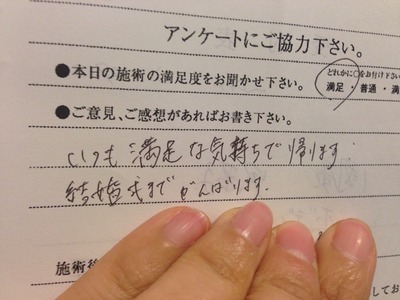 アンケートにご協力下さい。
●本日の施術の満足度をお聞かせ下さい。
どれかに○をお付け下さい
満足・普通・満
●ご意見、ご感想があればお書き下さい。
いつも満足な気持ちで帰ります。
結婚式までがんばります。
施術後
してお